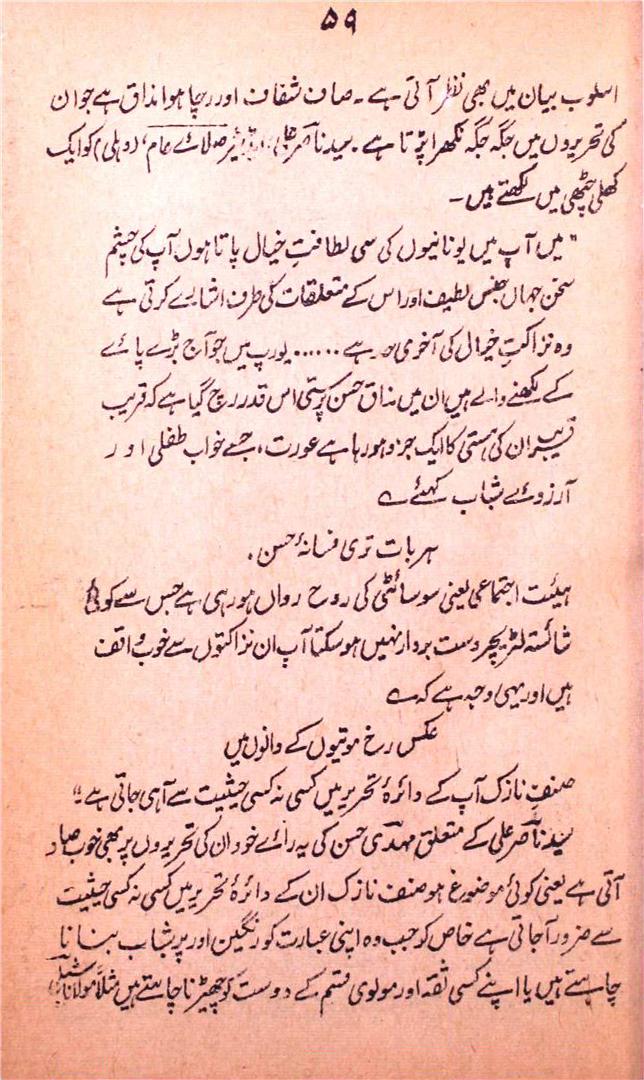 ۵۹
اسلوب بیان میں بھی نظر آتی ہے۔ صاف شفاف اور رچا ہوا مذاق ہے جو ان
کی تحریروں میں جگہ جگہ نکھرا پڑتا ہے۔ سید ناصر علی، اڈیٹر صلائے عام، (دہلی) کو ایک
کھلی چٹھی میں لکھتے ہیں۔
"میں آپ میں یونانیوں کی سی لطافتِ خیال پاتا ہوں آپ کی چشم
سخن جہاں جنس لطیف اور اس کے متعلقات کی طرف اشارے کرتی ہے
وہ نزاکتِ خیال کی آخری حد ہے ...... یورپ میں جو آج بڑے پائے
کے لکھنے والے ہیں ان میں مذاق حسن پرستی اس قدر رچ گیا ہے کہ قریب
قریب ان کی ہستی کا ایک جزو ہو رہا ہے عورت، جسے خواب طفلی اور
آرزوئے شباب کہئے ؎
ہر بات تری فسانۂ حسن،
ہیئت اجتماعی یعنی سوسائٹی کی روح رواں ہو رہی ہے جس سے کوئی
شائستہ لٹریچر دست بردار نہیں ہو سکتا آپ ان نزاکتوں سے خوب واقف
ہیں اور یہی وجہ ہے کہ ؎
عکس رخ موتیوں کے دانوں میں
صنفِ نازک آپ کے دائرۂ تحریر میں کسی نہ کسی حیثیت سے آ ہی جاتی ہے"
سید ناصر علی کے متعلق مہدی حسن کی یہ رائے خود ان کی تحریروں پر بھی خوب صاد
آتی ہے یعنی کوئی موضوع ہو صنف نازک ان کے دائرۂ تحریر میں کسی نہ کسی حیثیت
سے ضرور آجاتی ہے خاص کو جب وہ اپنی عبارت کو رنگین اور پر شباب بنانا
چاہتے ہیں یا اپنے کسی ثقہ اور مولوی قسم کے دوست کو چھیڑنا چاہتے ہیں مثلاً مولانا شبلی